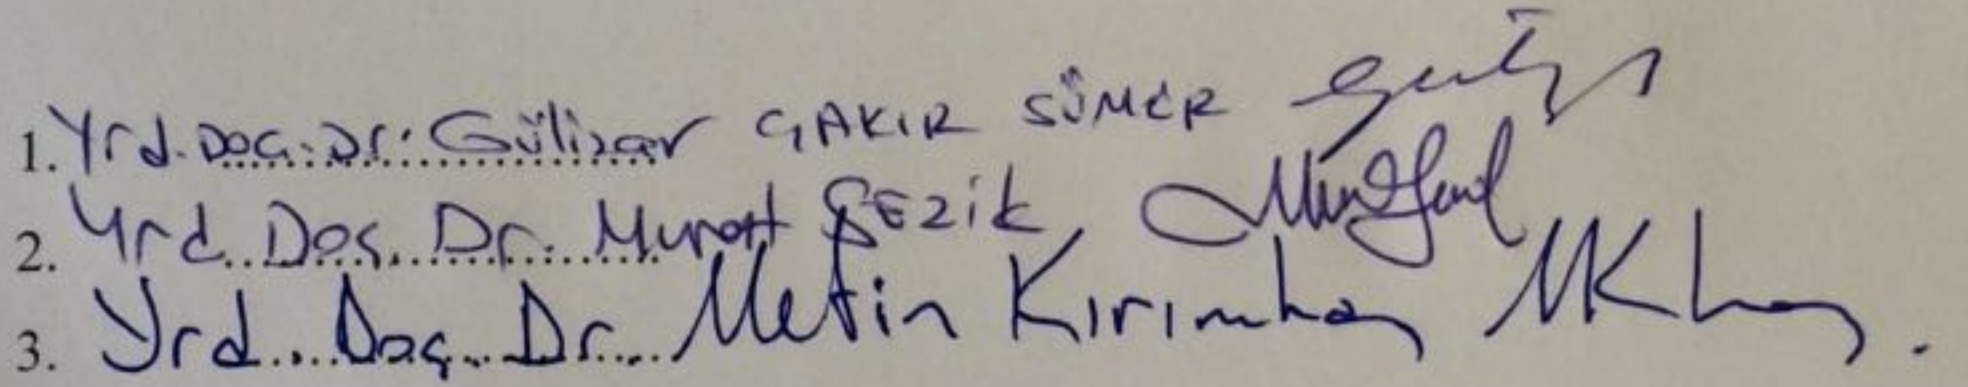 1. Yrd. Doç. Dr. Gülizar ÇAKIR SÜMER
2. Yrd. Doç. Dr. Murat SEZİK
3. Yrd. Doç. Dr. Metin Kırımhan